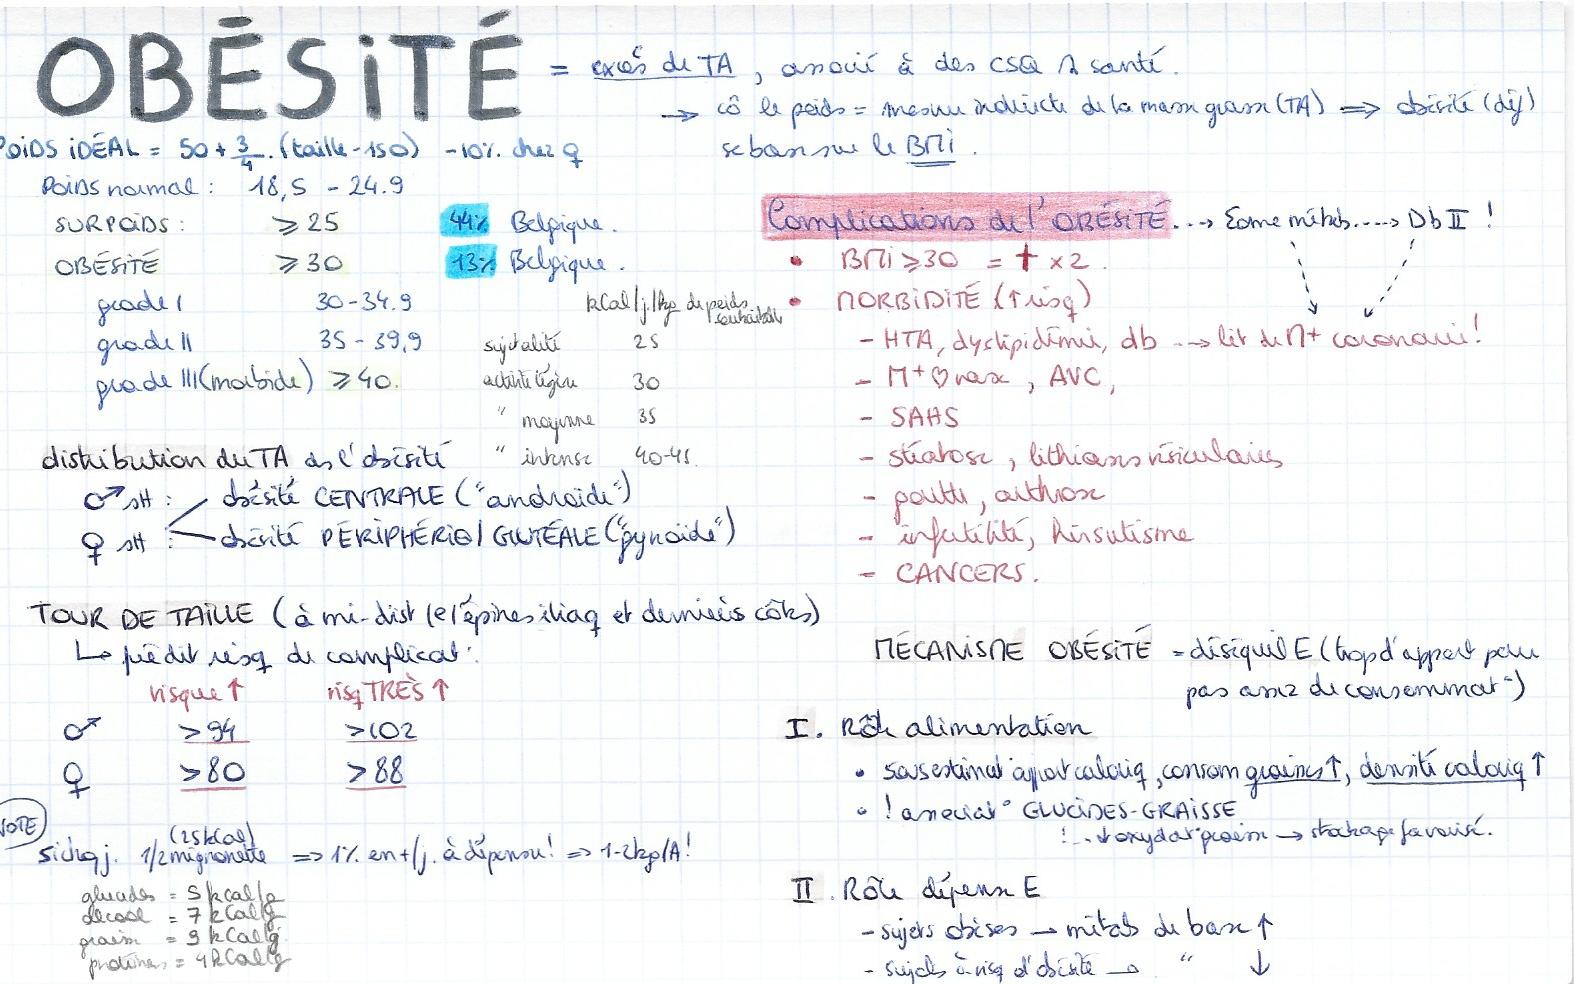 OBÉSITÉ = excès de TA, associé à des CSQ santé.
→ cô le poids = mesure indirecte de la masse grasse (TA) ⇒ obésité (déf)
se base sur le BMI.
POIDS IDÉAL = 50 + 3/4 . (taille - 150) -10% chez ♀
POIDS normal : 18,5 - 24.9
SURPOIDS : ≥ 25 44% Belgique.
OBÉSITÉ ≥ 30 13% Belgique.
grade I 30-34.9
grade II 35-39,9
grade III (morbide) ≥ 40.
kCal/j./kg de poids souhaitable
sujet alité 25
activité légère 30
" moyenne 35
" intense 40-45
distribution du TA ds l'obésité
♂ sH : obésité CENTRALE ("androïde")
♀ sH : obésité PÉRIPHÉRIQ / GLUTÉALE ("gynoïde")
TOUR DE TAILLE (à mi-dist le l'épines iliaq et dernières côtes)
↳ prédit risq de complicat°.
risque ↑ risq TRÈS ↑
♂ >94 >102
♀ >80 >88
NOTE
(25 kCal)
Si chq j. 1/2 mignonette ⇒ 1% en + /j. à dépenser! ⇒ 1-2kg/A!
glucides = 5 kCal/g
alcool = 7 kCal/g
graisse = 9 kCal/g
protéines = 4 kCal/g
Complications de l'OBÉSITÉ. ⇢ Σome métab. ⇢ Db II !
• BMI ≥ 30 = † x 2.
• MORBIDITÉ (↑ risq)
- HTA, dyslipidémie, db ⇢ lit de M+ coronaire!
- M+ ♡ vasc, AVC,
- SAHS
- stéatose, lithiases vésiculaires
- goutte, arthrose
- infertilité, hirsutisme
- CANCERS.
MÉCANISME OBÉSITÉ = déséquil E (trop d'apport pour
pas assez de consommat°)
I. Rôle alimentation
• sousestimat° apport caloriq, consom graisses ↑, densité caloriq ↑
• ! associat° GLUCIDES-GRAISSE
! ↓ oxydat° graisse → stockage favorisé.
II. Rôle dépense E
- sujets obèses → métab de base ↑
- sujets à risq d'obésité → " ↓